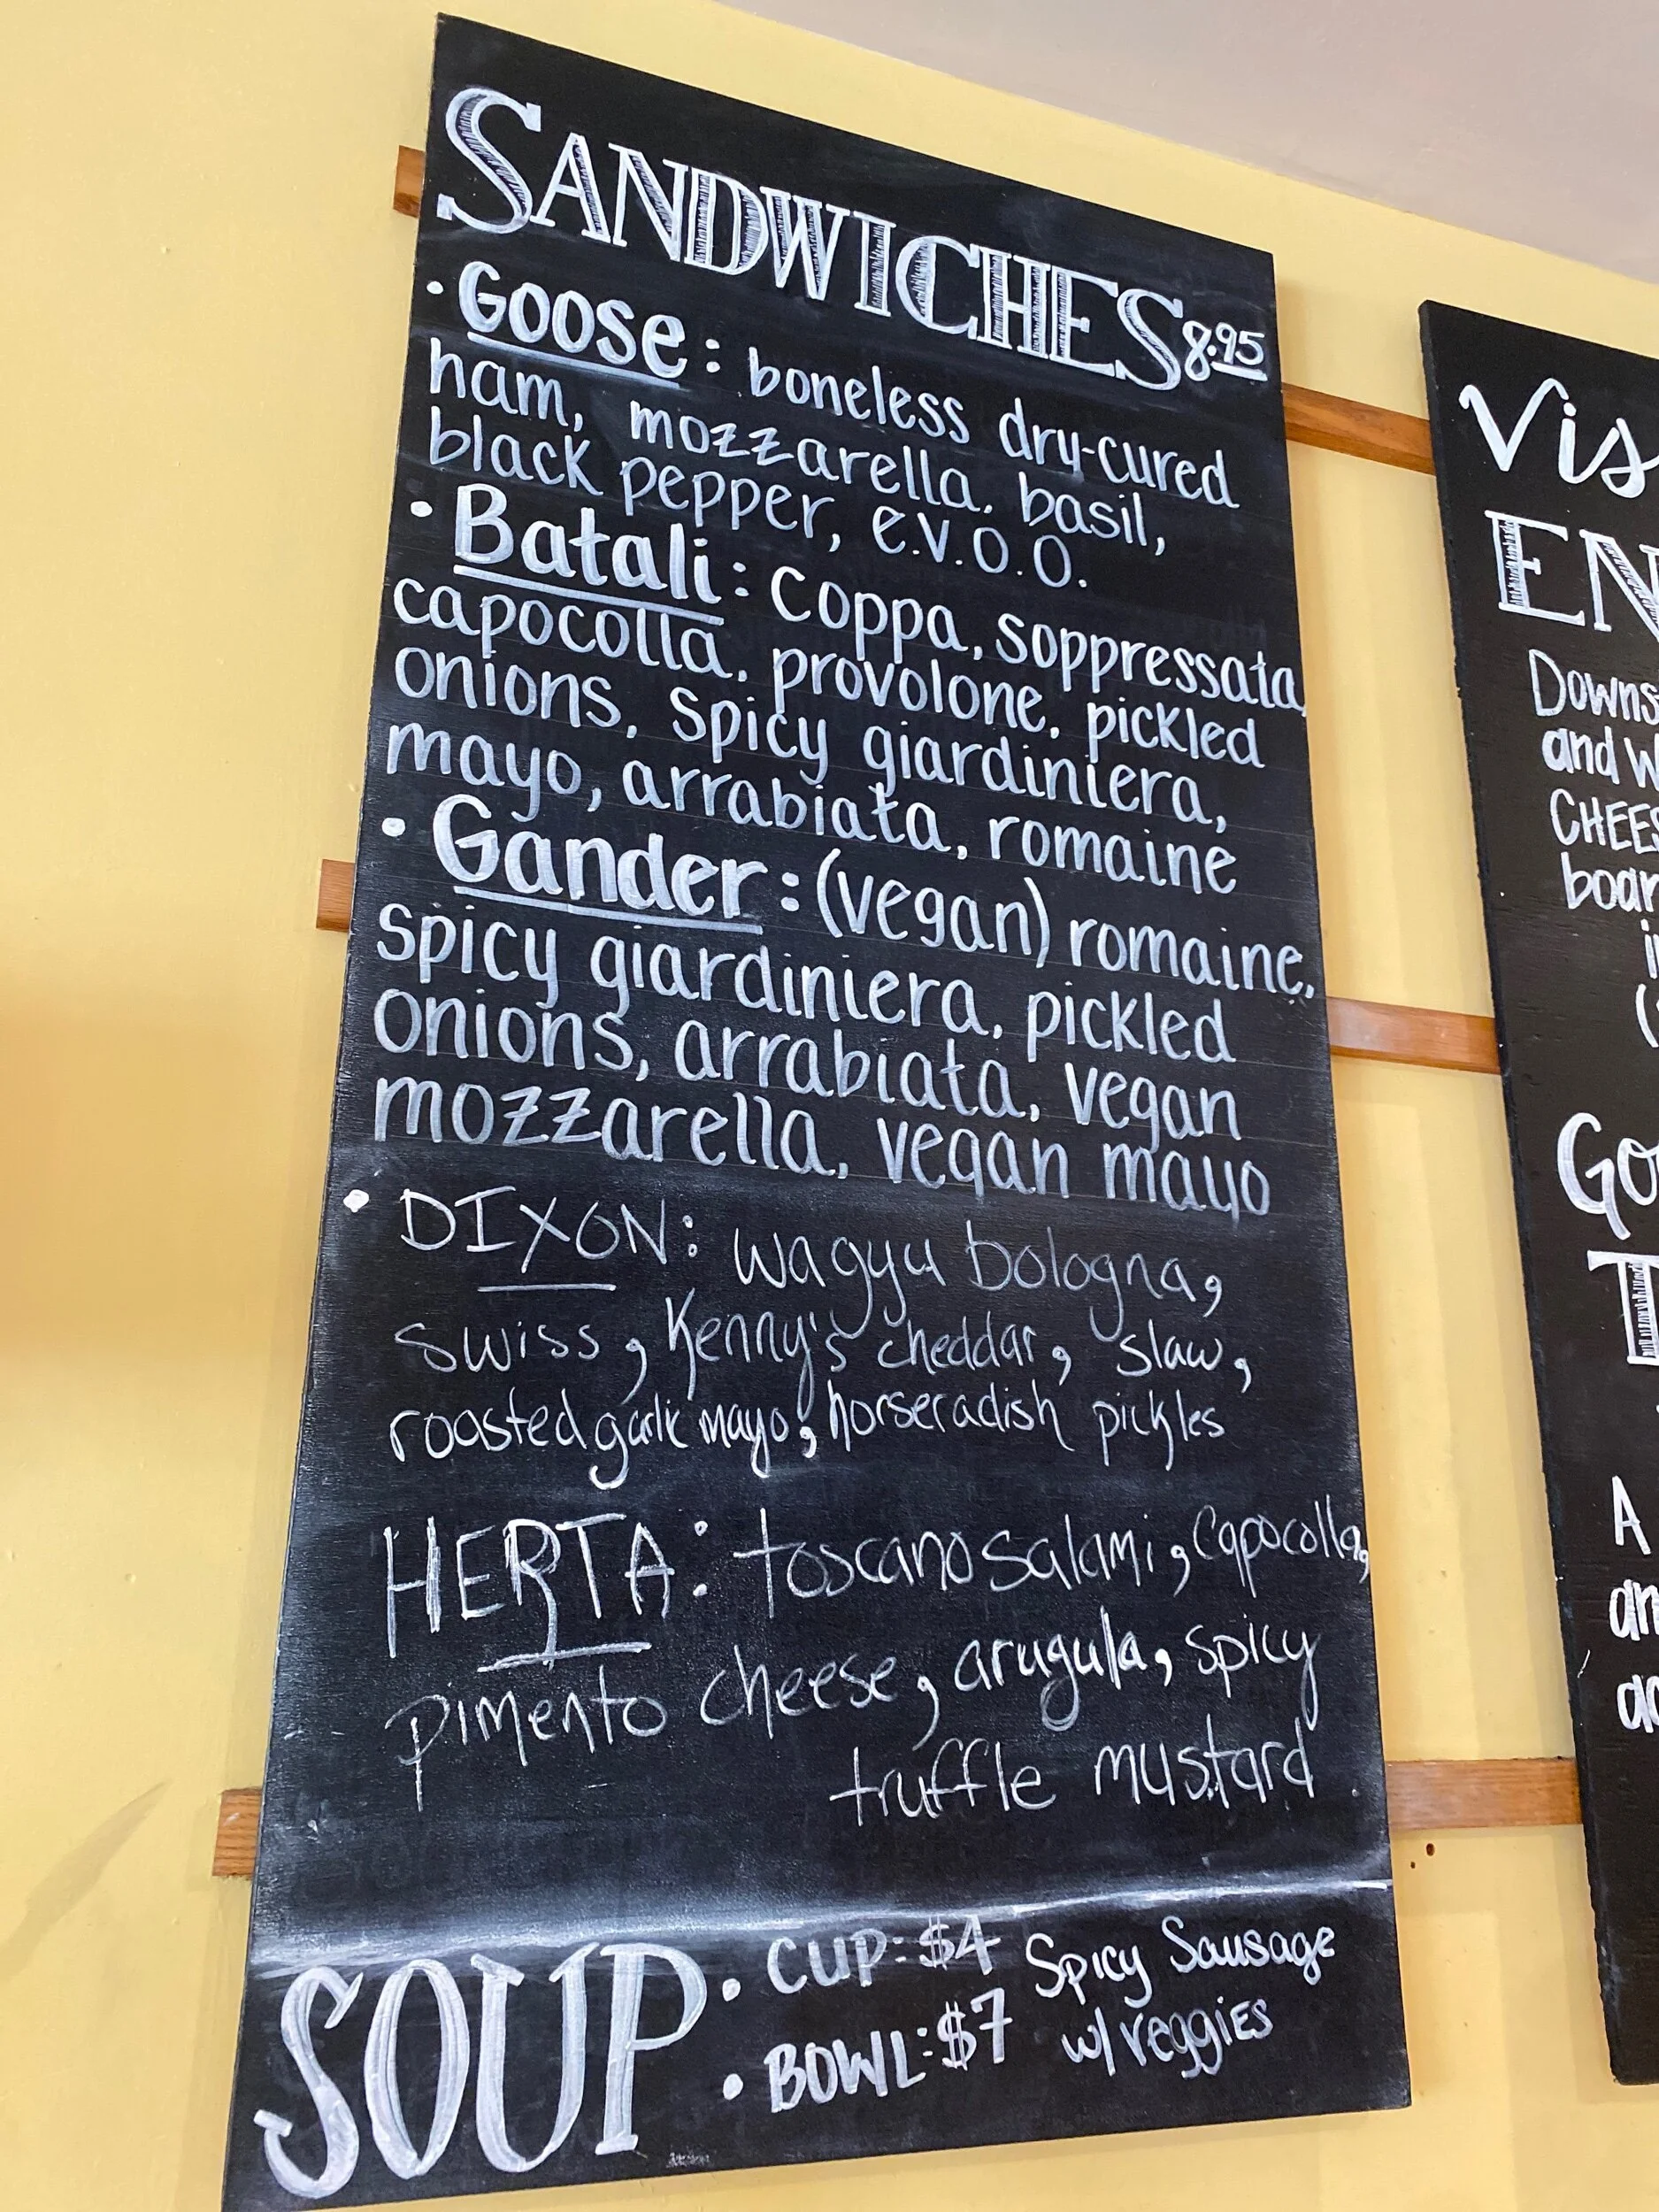 SANDWICHES 8.95
• Goose: boneless dry-cured
ham, mozzarella, basil,
black pepper, e.v.o.o.
• Batali: coppa, soppressata,
capocolla, provolone, pickled
onions, spicy giardiniera,
mayo, arrabiata, romaine
• Gander: (vegan) romaine,
spicy giardiniera, pickled
onions, arrabiata, vegan
mozzarella, vegan mayo
• DIXON: wagyu bologna,
swiss, Kenny's cheddar, slaw,
roasted garlic mayo, horseradish pickles
HERTA: toscano salami, capocolla,
pimento cheese, arugula, spicy
truffle mustard
SOUP • CUP: $4 Spicy Sausage
• BOWL: $7 w/ veggies
Vis
EN
Downs
and w
CHEES
boar
i
(
Go
T
A
an